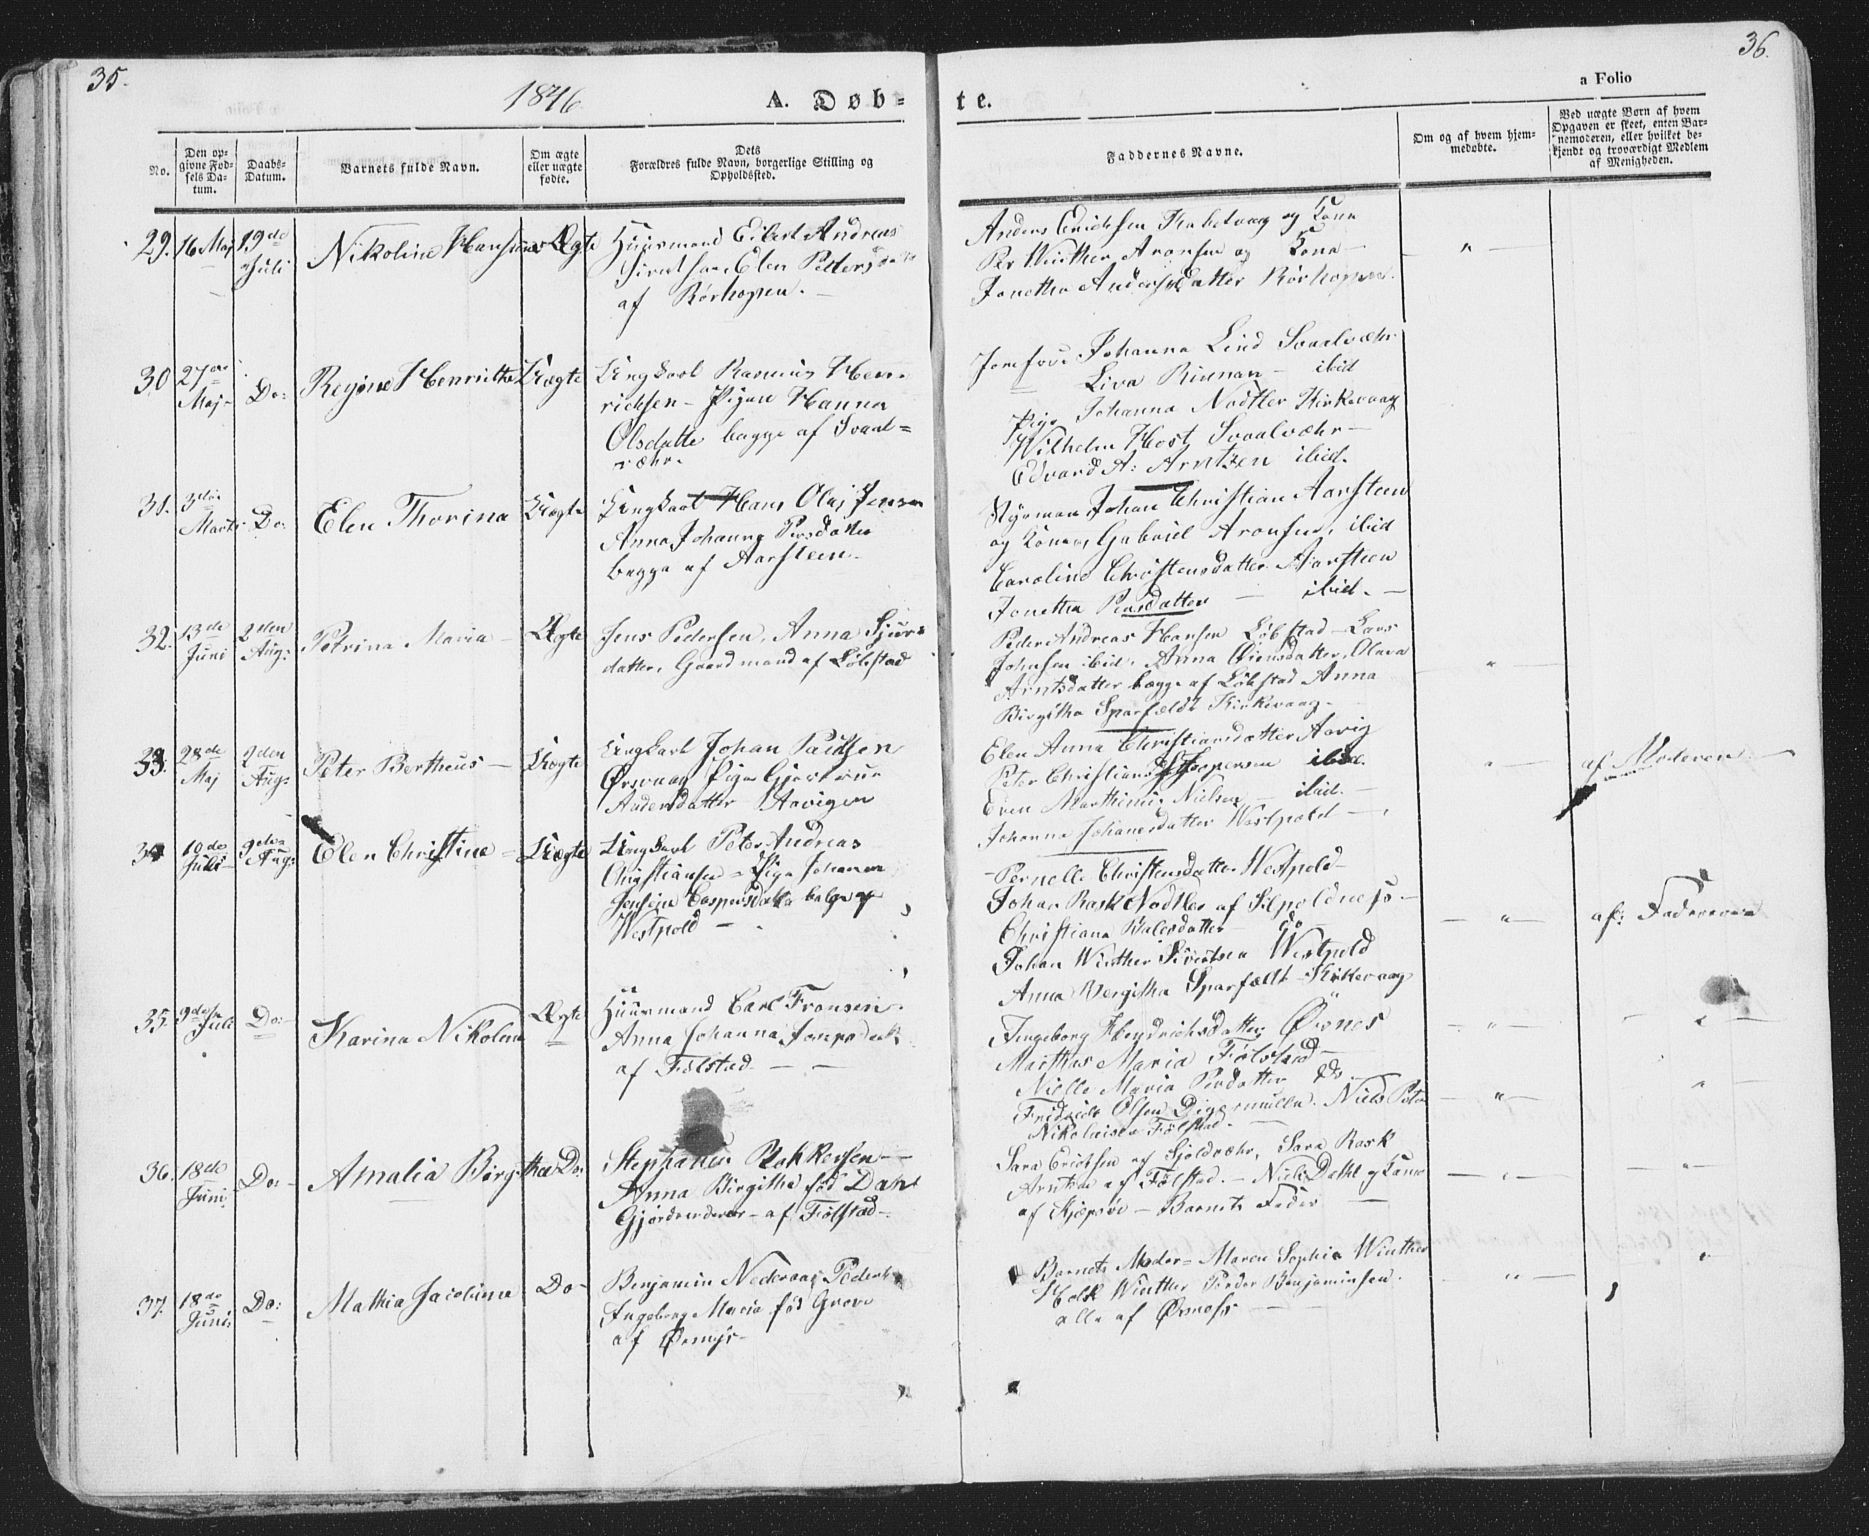 35.
1846
A. Døb=
te.
a Folio
36.
No.
Den op-
givne Fød-
sels Da-
tum.
Daabs-
Datum.
Barnets fulde Navn.
Om ægte
eller uægte
fødte.
Dets
Forældres fulde Navn, borgerlige Stilling og
Opholdssted.
Faddernes Navne.
Om og af hvem hjem-
medøbte.
Ved uægte Børn af hvem
Opgaven er skeet, enten Bar-
nemoderen, eller hvilket be-
kjendt og troværdigt Medlem
af Menigheden.
29. 16 Maj 19de Juli
Nikoline
Ægte
Huusmand Eilert Andreas
Elen Peders
af Rørhopen. —
Anders Erichsen og Kona
Per Winther Aronsen og Kona —
Jonetha Andersdatter Rørhopen.
30 27de Maj - Do:
Regine Henrikke
Uægte
Ungkarl Rasmus Hen-
richsen - Pigen Hanna
Olsdatte begge af Svaal=
væhr.
Jomfrue Johanna Lind Svaalvæhr
Liva Rinnan — ibid
Pige Johanna Nodtler Kirkevaag
Wilhelm Host Svaalvæhr —
Edvard A: Arntzen ibid.
31. 3die Marts - Do:
Elen Thorina
Uægte
Ungkarl Hans Olaj Jensen
Anna Johanna Persdatter
begge af Aarsteen.
Styrman Johan Christian Aarsteen
og Kona, Gabriel Aronsen, ibid
Caroline Christensdatter Aarsteen
Jonetha Persdatter — ibid. —
32. 13de Juni 2den Aug:
Petrina Maria —
Ægte
Jens Pedersen, Anna Sjurs
datter, Gaardmand af Løbstad
Peder Andreas Hansen Løbstad - Lars
Johnsen ibid. Anna datter, Olava
Arntsdatter begge af Løbstad Anna
Birgitha Sparfældt Kirkevaag.
33. 28de Maj 2den Aug:
Peter Bertheus —
Uægte
Ungkarl Johan
Ørsvaag Pige Gjertrue
Andersdatter Aavigen
Elen Anna Christiansdatter Aavig
Peter Christian Jespersen ibid.
Even Marthinus Nielsen — ibid. —
Johanna Johanesdatter Westpold —
af Moderen —
34 10de Juli - 9de Aug:
Elen Christine —
Uægte
Ungkarl Peter Andreas
Christiansen = Pige Johanna
Jensine Caspersdatter begge af
Westpold —
Pernelle Christensdatter Westpold —
Johan Rask Nodtler af
Christiana datter Do
Johan Winther Sivertsen Westpold
Anna Bergitha Sparfældt — Kirkevaag
af: Faderen
35. 9de Juli Do:
Karina Nikoline
Ægte
Huusmand Carl Fransen.
Anna Johanna
af Følstad — —
Ingeborg Hendrichsdatter Ørnes
Marthas Maria Følstad —
Nielle Maria Persdatter Do.
Fridrich Olsen Digermullen. Niels Peter
Nikolaisen Følstad. —
36. 18de Juni. Do: -
Amalia Birgitha
Do.
Stephanus Bakkesen —
Anna Birgitha fød Dahl
af Følstad —
Sara Erichsen af Sjoldvæhr, Sara Rask
Arntsen af Følstad. — Niels Dahl og Kona
af Skjæpsøe — Barnets Fader —
37. 18de Juni Do:
Mathia Jacobina
Do —
Benjamin
Ingeborg Maria fød Grove
af
Barnets Moder = Maren Sophia Winther
Holk Winther Peder Benjaminsen.
alle af Ørsnes —